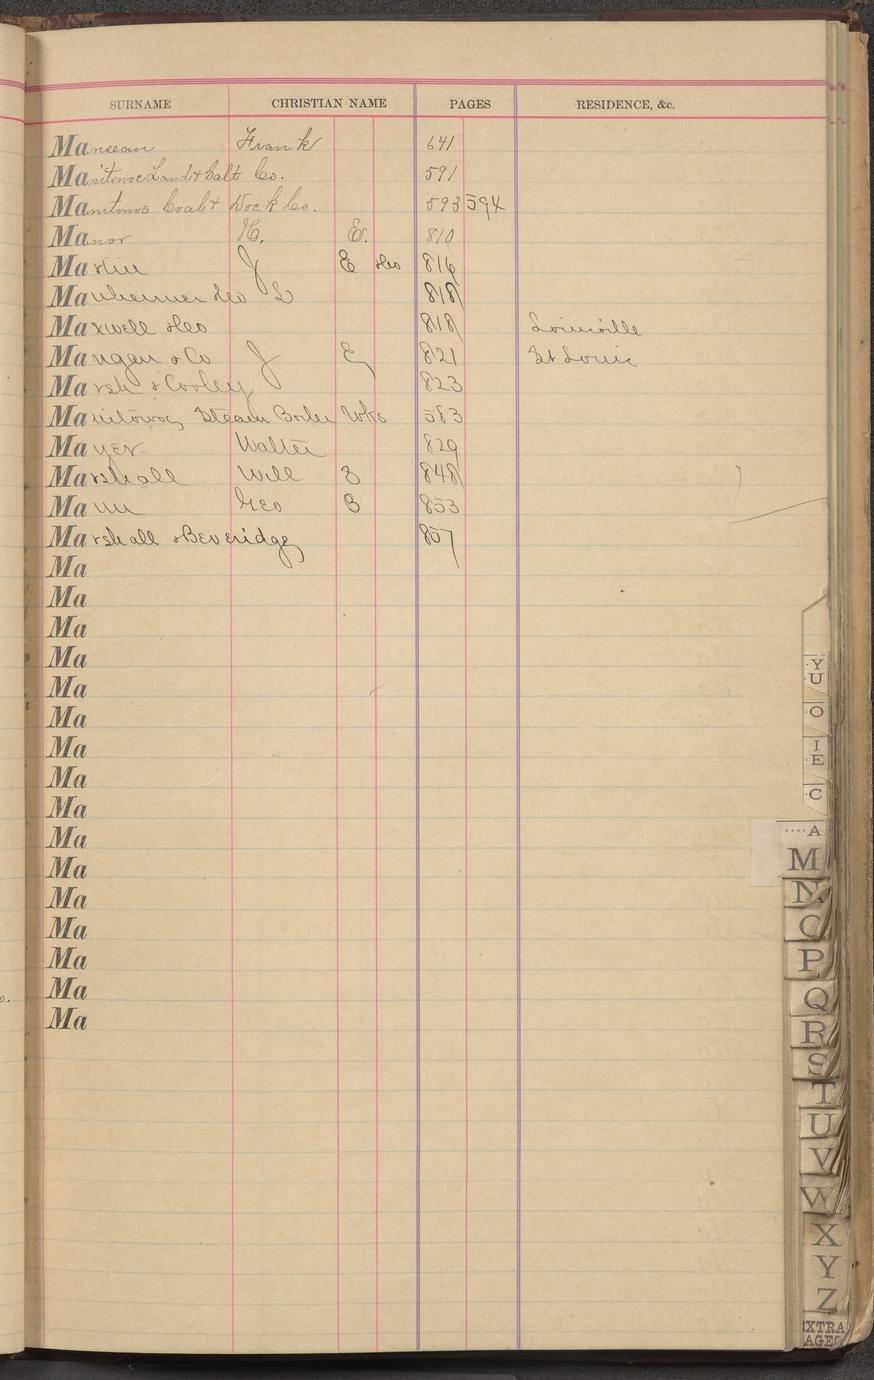 SURNAME CHRISTIAN NAME PAGES RESIDENCE, &c.
Manseau Frank 641
Manitowoc Land & Salt Co. 591
Manitowoc Coal & Dock Co. 593 594
Manor H. E. 810
Martin J E Geo 816
Manheimer Geo L 818
Maxwell Geo 818 Louisville
Mangan & Co J E 821 St Louis
Marsh & Cooley 823
Manitowoc Steam Boiler Wks 583
Mayer Walter 829
Marshall Will Z 848
Mann Geo B 853
Marshall & Beveridge 857
Ma
Ma
Ma
Ma
Ma
Ma
Ma
Ma
Ma
Ma
Ma
Ma
Ma
Ma
Ma
Ma
YU
O
IE
C
A
M
N
O
P
Q
R
S
T
U
V
W
X
Y
Z
EXTRA
PAGES